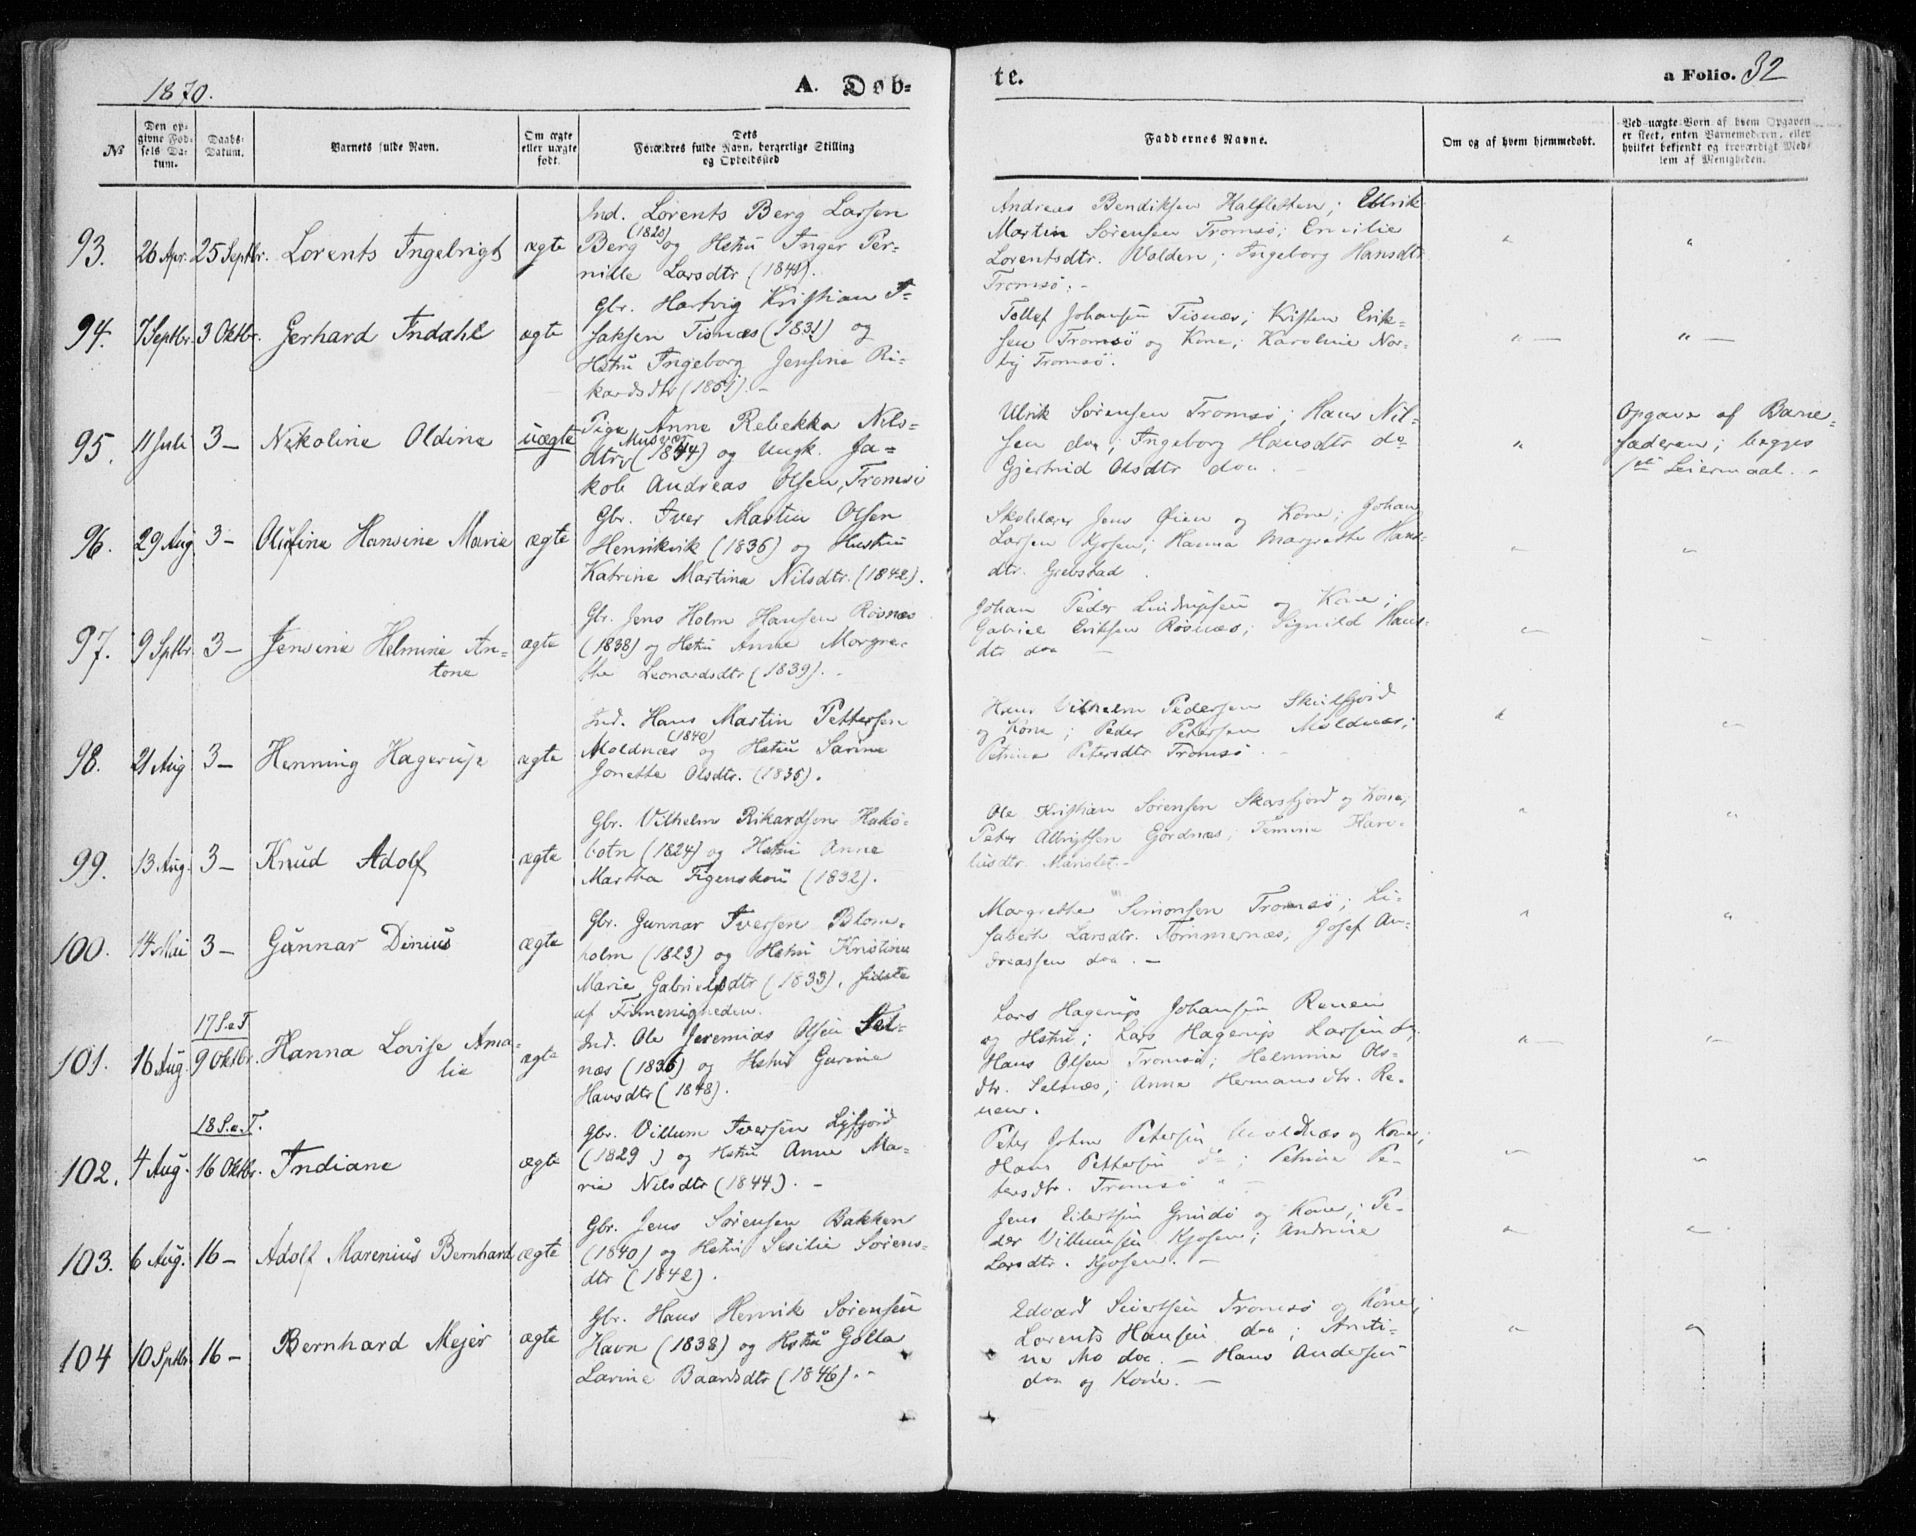 1870.
A. Døb-
te.
a Folio. 32
No
Den op-
givne Fød-
sels Da-
tum.
Daabs-
Datum.
Barnets fulde Navn.
Om ægte
eller uægte
født.
Dets
Forældres fulde Navn, borgerlige Stilling
og Opholdssted
Faddernes Navne.
Om og af hvem hjemmedøbt.
Ved uægte Børn af hvem Opgaven
er skeet, enten Barnemoderen, eller
hvilket bekjendt og troværdigt Med-
lem af Menigheden.
93. 26 Apr. 25 Septbr. Lorents Ingebrigt ægte
Ind. Lorents Berg Larsen
Berg (1820) og Hstru Inger Per-
nille Larsdtr (1841).
Andreas Bendiksen Halsletten; Ulrik
Martin Sørensen Tromsø; Emilie
Lorentsdtr. Valden; Ingeborg Hansdtr
Tromsø. -
" "
94. 7 Septbr. 3 Oktbr. Gerhard Indahl ægte
Gbr. Hartvig Kristian I-
saksen Tisnæs (1831) og
Hstru Ingeborg Jensine Ri-
kardsdtr (1831). -
Tollef Johansen Tisnæs; Kristen Erik-
sen Tromsø og Kone; Karoline Nor-
by Tromsø.
" — " —
95. 11 Juli 3 — Nikoline Oldine uægte
Pige Anne Rebekka Nils-
dtr Musvær (1844) og Ungk. Ja-
kob Andreas Olsen, Tromsø
Ulrik Sørensen Tromsø; Hans Nil-
sen doa; Ingeborg Hansdtr do
Gjertrud Olsdtr doa. -
"
Opgave af Barne-
faderen; begges
1ste Leiermaal. -
96. 29 Aug 3 — Olufine Hansine Marie ægte
Gbr. Iver Martin Olsen
Henrikvik (1836) og Hustru
Katrine Martina Nilsdtr. (1842).
Skolelærer Jens Øien og Kone; Johan
Larsen Kjosen; Hanna Margrethe Hans-
dtr. Grebstad.
" "
97. 9 Septbr 3 — Jensine Helmine An-
tone ægte
Gbr. Jens Holm Hansen Røsnæs
(1838) og Hstru Anne Margre-
the Leonardsdtr (1839). -
Johan Peder Lindrupsen og Kone;
Gabriel Eriksen Røsnæs; Signild Hans-
dtr doa —
" "
98. 21 Aug 3 — Henning Hagerup ægte
Ind. Hans Martin Pettersen
Moldnæs (1840) og Hstru Sarine
Jonetta Olsdtr. (1835).
Hans Vilhelm Pedersen Skulsfjord
og Kone; Peder Petersen Moldnæs;
Petrine Petersdtr Tromsø. -
" "
99. 13 Aug. 3 — Knud Adolf ægte
Gbr. Vilhelm Rikardsen Hakø-
botn (1824) og Hstru Anne
Martha Figenskou (1832).
Ole Kristian Sørensen Skarsfjord og Kone;
Peter Albrigtsen Gjordnæs;
lusdtr. -
" "
100. 14 Mai 3 — Gunnar Dinius ægte
Gbr. Gunnar Iversen Blom-
holm (1823) og Hstru Kristine
Marie Gabrielsdtr (1833), sidste
af Frimenigheden.
Margrethe Simonsen Tromsø; Li-
sabeth Larsdtr. Tømmernæs; Josef An-
dreassen doa. —
" "
17 S. e. T.
101. 16 Aug. 9 Oktbr. Hanna Lovise Ama-
lie ægte
Ind. Ole Jeremias Olsen Sel-
næs (1836) og Hstru Gurine
Hansdtr (1848).
Lars Hagerup Johansen Renen
og Hstru; Lars Hagerup Larsen do;
Hans Olsen Tromsø; Helmine Ols-
dtr. Selnæs; Anne Hermansdtr. Re-
nen.
" — "
18 S. e. T.
102. 4 Aug. 16 Oktbr. Indiane ægte
Gbr. Villum Iversen Lyfjord
(1829) og Hstru Anne Ma-
rie Nilsdtr (1844). -
Peter Johan Petersen Moldnæs og Kone;
Hans Pettersen do; Petrine Pe-
tersdtr. Tromsø —
" "
103. 6 Aug. 16 — Adolf Marenius Bernhard ægte
Gbr. Jens Sørensen Bakken
(1840) og Hstru Sesilie Sørens-
dtr (1842).
Jens Eilertsen Grindø og Kone; Pe-
der Villumsen Kjosen; Andrine
Larsdtr. Kjosen. —
" "
104 10 Septbr 16 — Bernhard Mejer ægte
Gbr. Hans Henrik Sørensen
Havn (1838) og Hstru Golla
Larine Baardsdtr (1846). -
Edvard Sivertsen Tromsø og Kone;
Lorents Hansen doa; Anti-
na Mo doa. — Hans Andersen
doa og Kone. —
" "